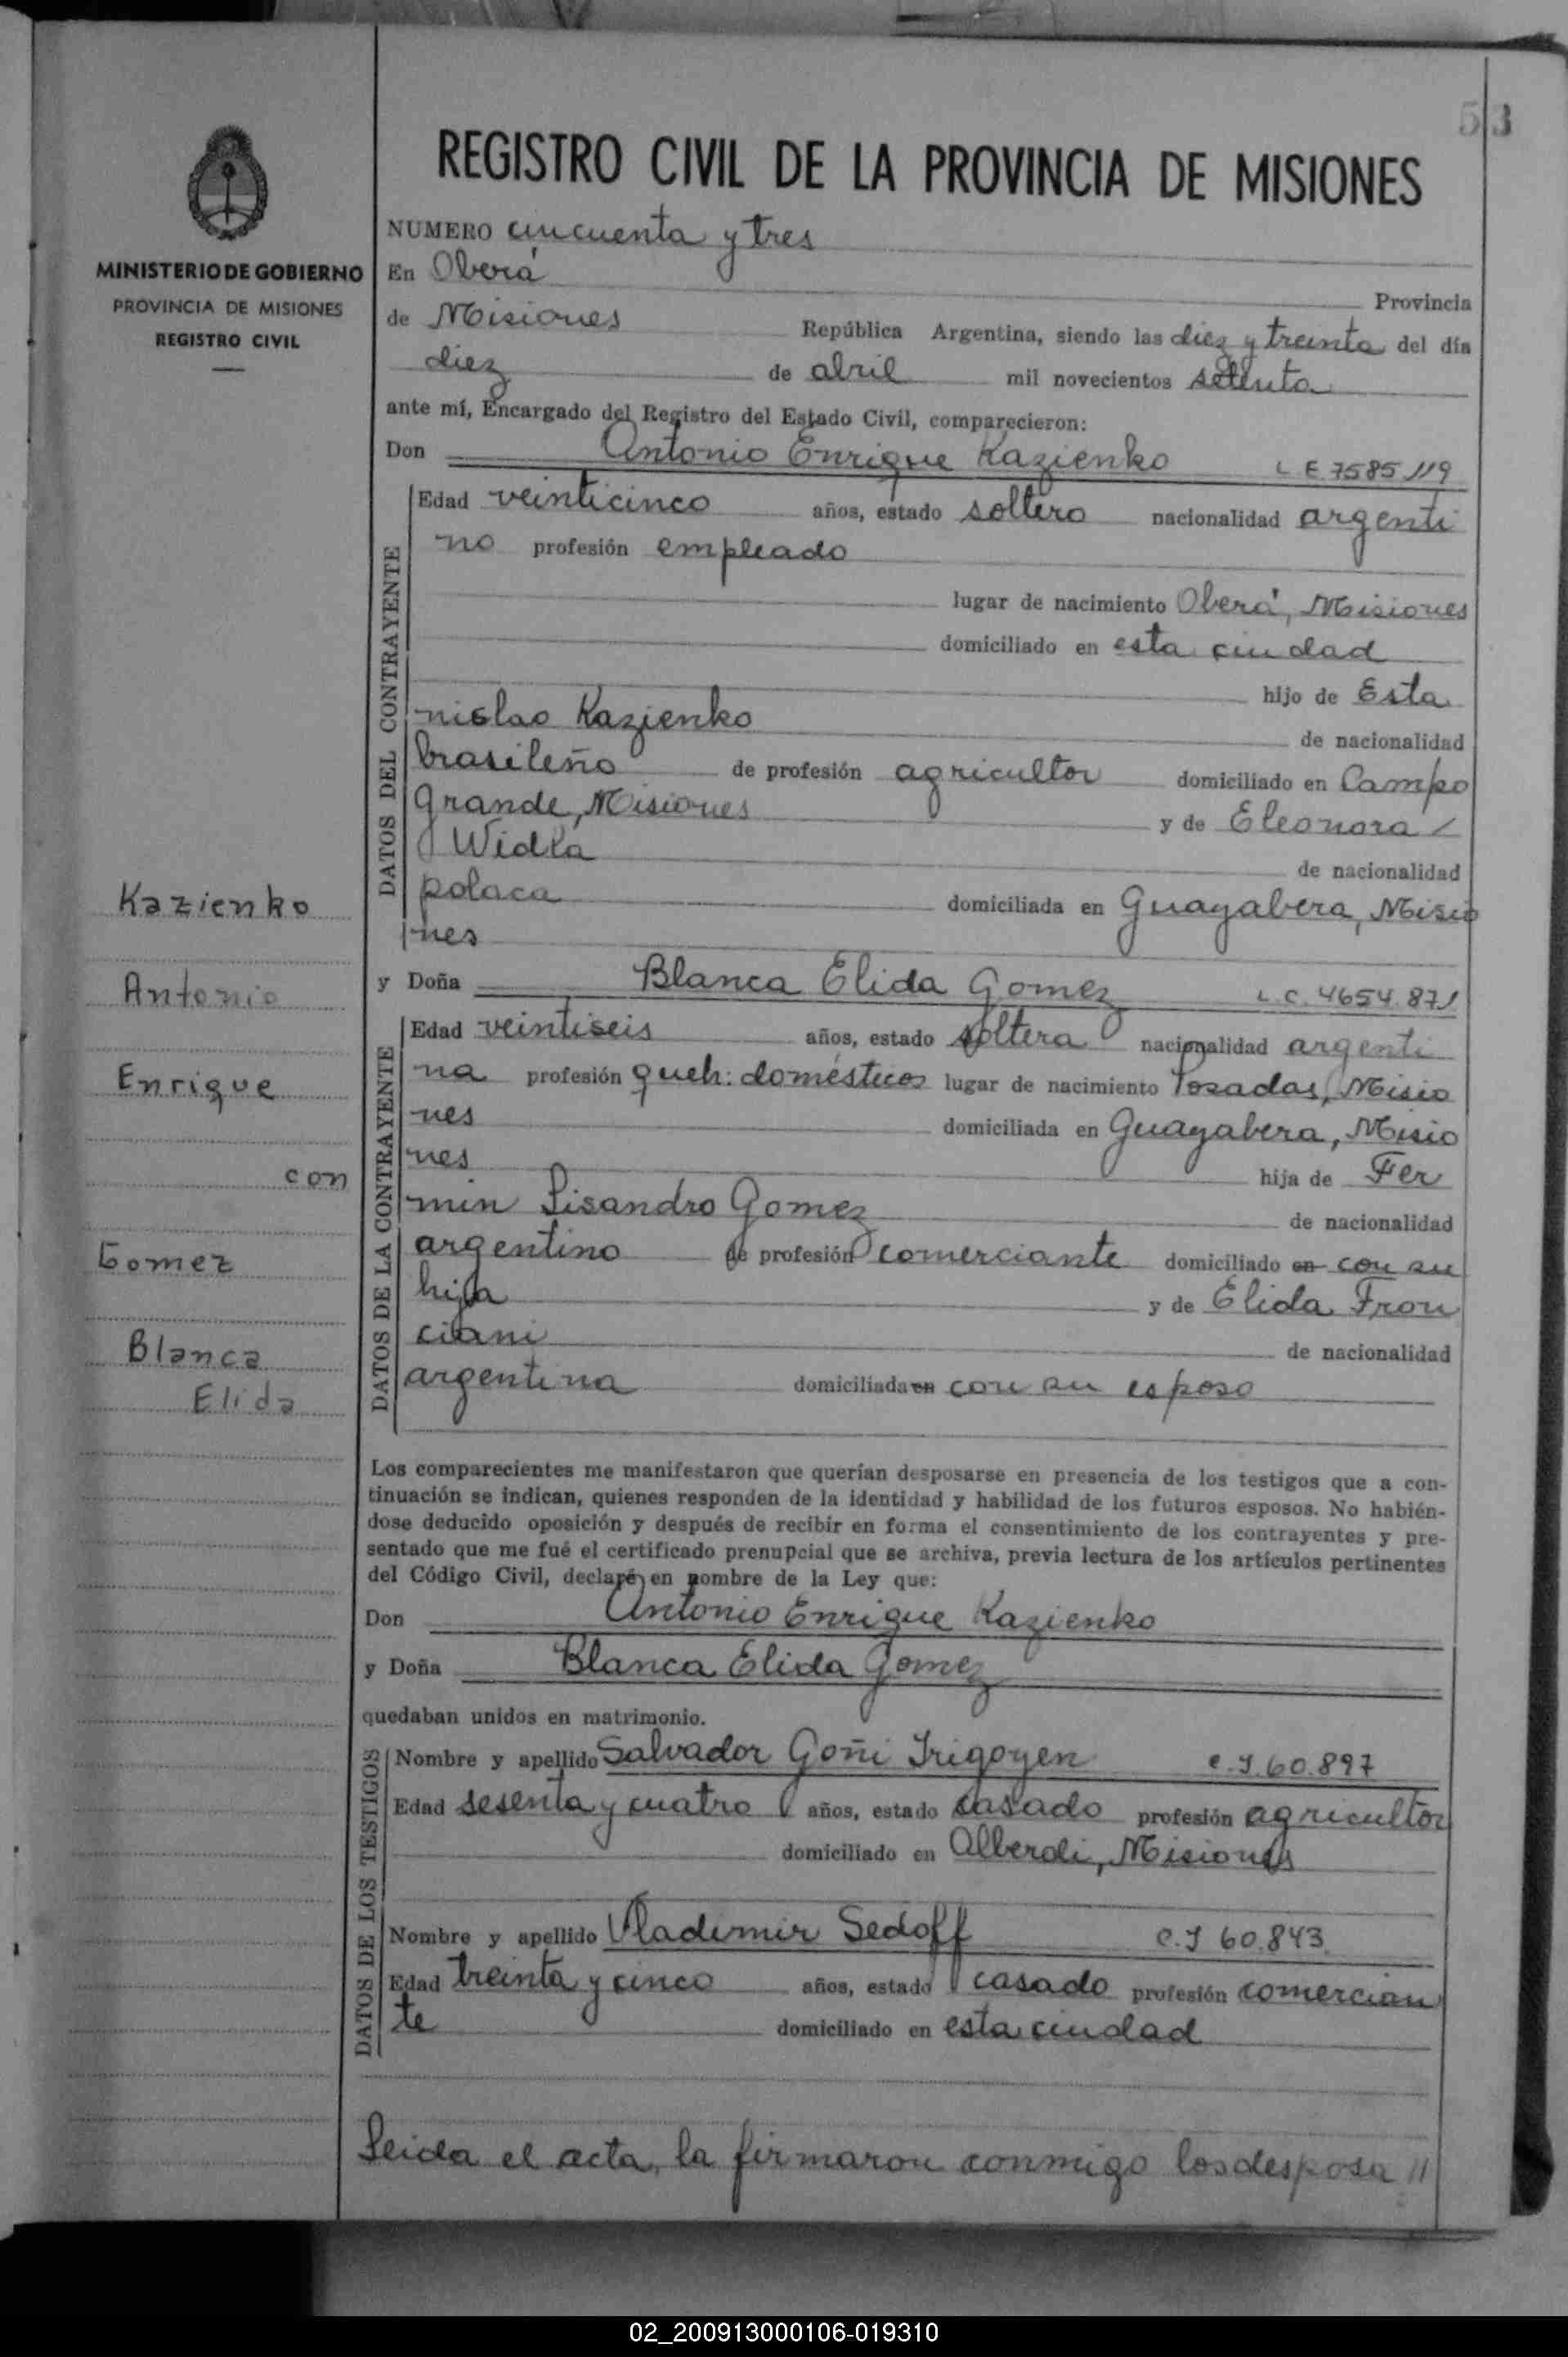 53
MINISTERIO DE GOBIERNO
PROVINCIA DE MISIONES
REGISTRO CIVIL
Kazienko
Antonio
Enrique
con
Gomez
Blanca
Elida
REGISTRO CIVIL DE LA PROVINCIA DE MISIONES
NUMERO cincuenta y tres
En Oberá Provincia
de Misiones República Argentina, siendo las diez y treinta del día
diez de abril mil novecientos setenta
ante mí, Encargado del Registro del Estado Civil, comparecieron:
Don Antonio Enrique Kazienko L E 7585119
DATOS DEL CONTRAYENTE
Edad veinticinco años, estado soltero nacionalidad argenti
no profesión empleado
lugar de nacimiento Oberá, Misiones
domiciliado en esta ciudad
hijo de Esta
nislao Kazienko de nacionalidad
brasileño de profesión agricultor domiciliado en Campo
Grande, Misiones y de Eleonora /
Widla de nacionalidad
polaca domiciliada en Guayabera, Misio
nes
y Doña Blanca Elida Gomez L.C. 4654.871
DATOS DE LA CONTRAYENTE
Edad veintiseis años, estado soltera nacionalidad argenti
na profesión queh: domésticos lugar de nacimiento Posadas, Misio
nes domiciliada en Guayabera, Misio
nes hija de Fer
min Lisandro Gomez de nacionalidad
argentino de profesión comerciante domiciliado en con su
hija y de Elida Fron
ciani de nacionalidad
argentina domiciliada en con su esposo
Los comparecientes me manifestaron que querían desposarse en presencia de los testigos que a con-
tinuación se indican, quienes responden de la identidad y habilidad de los futuros esposos. No habién-
dose deducido oposición y después de recibir en forma el consentimiento de los contrayentes y pre-
sentado que me fué el certificado prenupcial que se archiva, previa lectura de los artículos pertinentes
del Código Civil, declaré en nombre de la Ley que:
Don Antonio Enrique Kazienko
y Doña Blanca Elida Gomez
quedaban unidos en matrimonio.
DATOS DE LOS TESTIGOS
Nombre y apellido Salvador Goñi Irigoyen C.I. 60.897
Edad sesenta y cuatro años, estado casado profesión agricultor
domiciliado en Alberdi, Misiones
Nombre y apellido Vladimir Sedoff C.I 60.843
Edad treinta y cinco años, estado casado profesión comercian
te domiciliado en esta ciudad
Leida el acta, la firmaron conmigo los desposa //
02_200913000106-019310